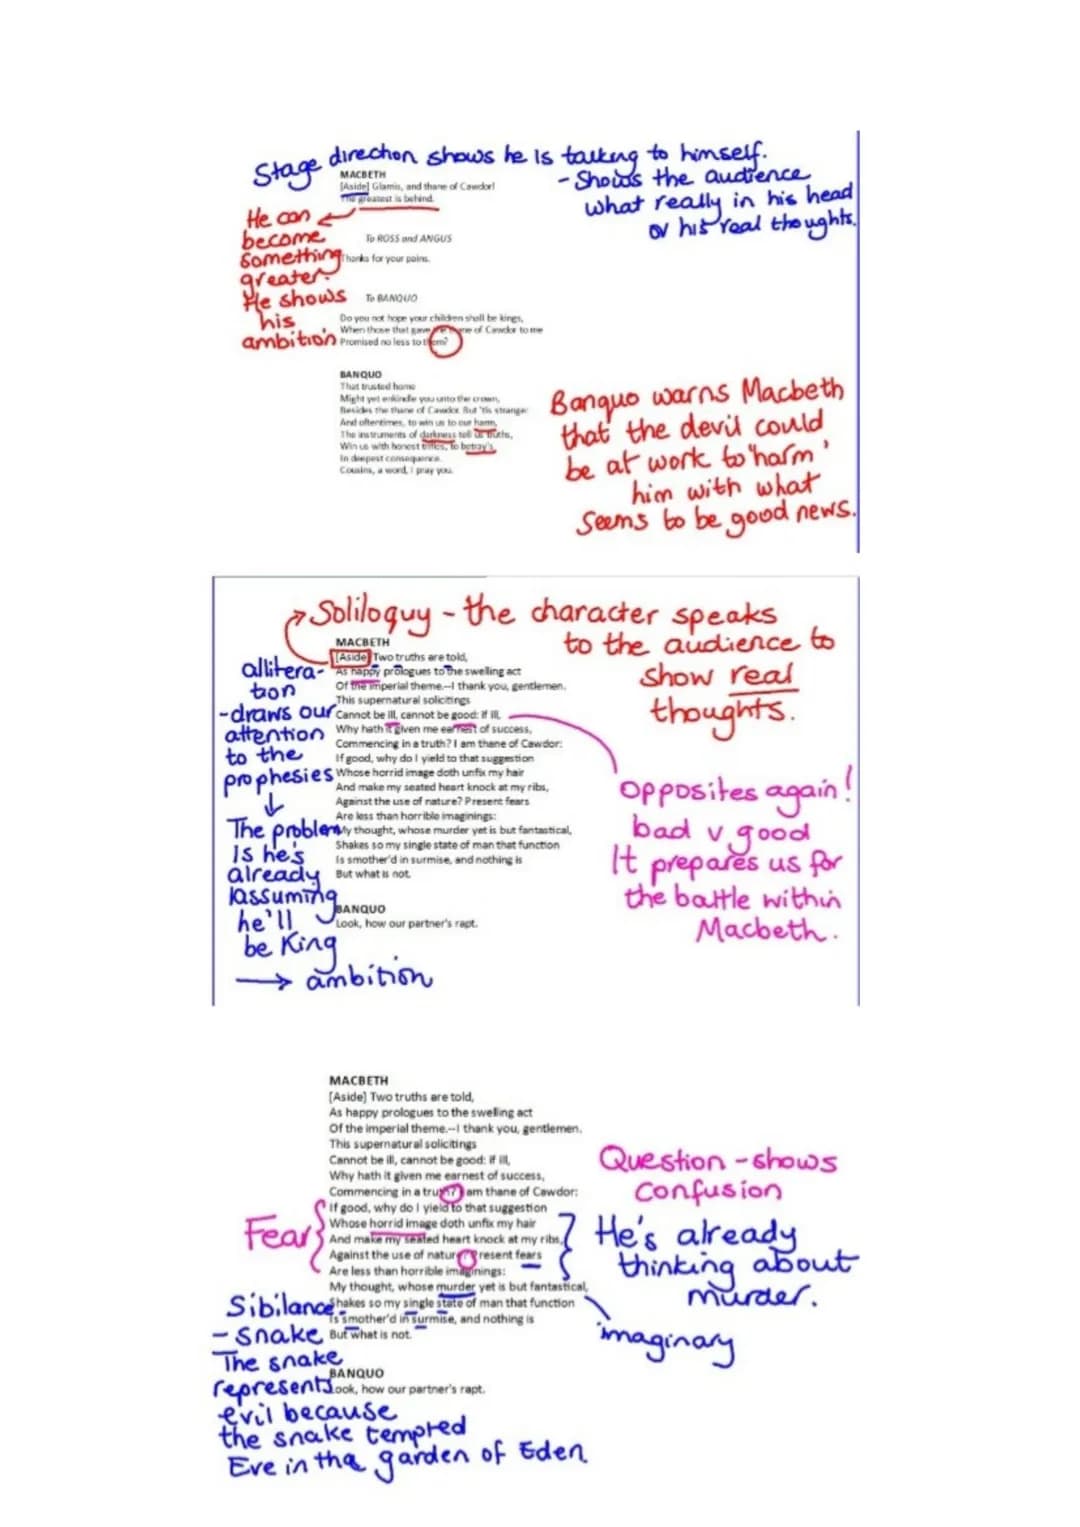 Stage direction shows he is talking to himself.
- Shows the audience
what really in his head
or his real thoughts.
MACBETH
[Aside] Glamis, and thane of Cawdor!
The greatest is behind.
He can
become
something
greater.
He shows
his
ambition
To ROSS and ANGUS
Thanks for your pains.
To BANQUO
Do you not hope your children shall be kings,
When those that gave the thane of Cawdor to me
Promised no less to them?
BANQUO
That trusted home
Might yet enkindle you unto the crown,
Besides the thane of Cawdor. But 'tis strange:
And oftentimes, to win us to our harm,
The instruments of darkness tell us truths,
Win us with honest trifles, to betray's
In deepest consequence.
Cousins, a word, I pray you.
Banquo warns Macbeth
that the devil could
be at work to 'harm'
him with what
seems to be good news.
Soliloquy - the character speaks
to the audience to
show real
thoughts.
MACBETH
[Aside] Two truths are told,
As happy prologues to the swelling act
Of the imperial theme.--I thank you, gentlemen.
This supernatural solicitings
Cannot be ill, cannot be good: if ill,
Why hath it given me earnest of success,
Commencing in a truth? I am thane of Cawdor:
If good, why do I yield to that suggestion
Whose horrid image doth unfix my hair
And make my seated heart knock at my ribs,
Against the use of nature? Present fears
Are less than horrible imaginings:
My thought, whose murder yet is but fantastical,
Shakes so my single state of man that function
Is smother'd in surmise, and nothing is
But what is not.
BANQUO
Look, how our partner's rapt.
allitera-
tion
- draws our
attention
to the
prophesies
The problem
is he's
already
assuming
he'll
be King
ambition
Opposites again!
bad v good
It prepares us for
the battle within
Macbeth.
MACBETH
[Aside] Two truths are told,
As happy prologues to the swelling act
Of the imperial theme.--I thank you, gentlemen.
This supernatural solicitings
Cannot be ill, cannot be good: if ill,
Why hath it given me earnest of success,
Commencing in a truth? I am thane of Cawdor:
If good, why do I yield to that suggestion
Whose horrid image doth unfix my hair
And make my seated heart knock at my ribs,
Against the use of nature? Present fears
Are less than horrible imaginings:
My thought, whose murder yet is but fantastical,
Shakes so my single state of man that function
Is smother'd in surmise, and nothing is
But what is not.
BANQUO
Look, how our partner's rapt.
Question - shows
confusion
Fear
He's already
thinking about
murder.
imaginary
Sibilance
- snake
The snake
represents
evil because
the snake tempted
Eve in the garden of Eden.